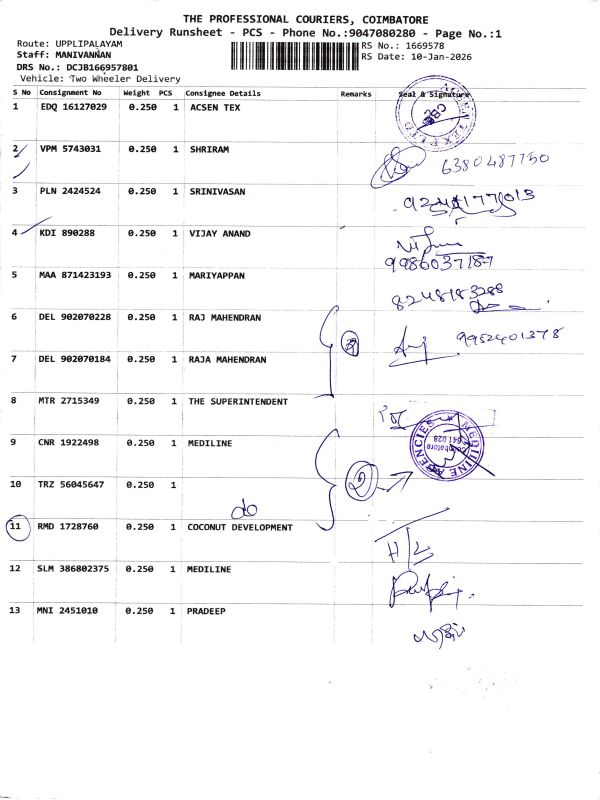 THE PROFESSIONAL COURIERS, COIMBATORE
Delivery Runsheet - PCS - Phone No.:9047080280 - Page No.:1
Route: UPPLIPALAYAM
Staff: MANIVANNAN
DRS No.: DCJB166957801
Vehicle: Two Wheeler Delivery
RS No.: 1669578
RS Date: 10-Jan-2026
S No Consignment No Weight PCS Consignee Details Remarks Seal & Signature
1 EDQ 16127029 0.250 1 ACSEN TEX
2 VPM 5743031 0.250 1 SHRIRAM 6380487750
3 PLN 2424524 0.250 1 SRINIVASAN
4 KDI 890288 0.250 1 VIJAY ANAND
9986037187
5 MAA 871423193 0.250 1 MARIYAPPAN
8248183288
6 DEL 902070228 0.250 1 RAJ MAHENDRAN
9952401378
7 DEL 902070184 0.250 1 RAJA MAHENDRAN
8 MTR 2715349 0.250 1 THE SUPERINTENDENT
9 CNR 1922498 0.250 1 MEDILINE
MEDILINE AGENCIES
Coimbatore
641 028
10 TRZ 56045647 0.250 1
2
do
11 RMD 1728760 0.250 1 COCONUT DEVELOPMENT
12 SLM 386802375 0.250 1 MEDILINE
13 MNI 2451010 0.250 1 PRADEEP